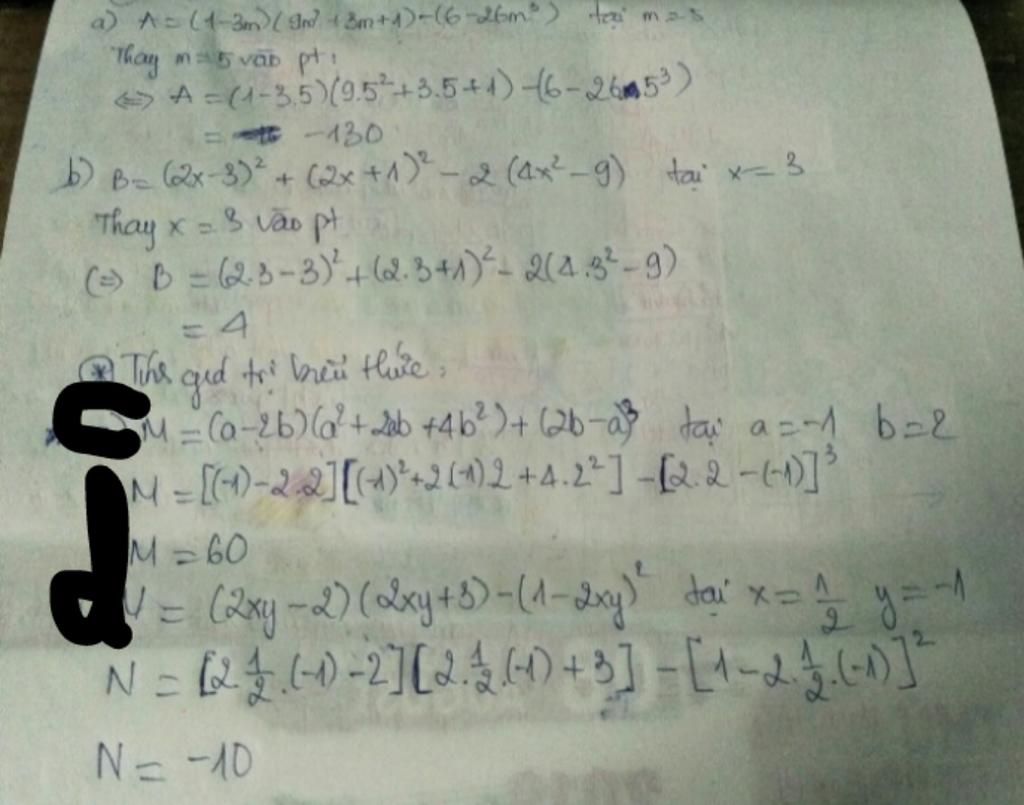 a) A = (1-3m)(9m² + 3m + 1) - (6 - 26m³) tại m = 5
Thay m = 5 vào pt:
⇔ A = (1-3.5)(9.5² + 3.5 + 1) - (6 - 26.5³)
= -130
b) B = (2x-3)² + (2x+1)² - 2(4x² - 9) tại x = 3
Thay x = 3 vào pt
(⇒ B = (2.3-3)² + (2.3+1)² - 2(4.3² - 9)
= 4
* Tính giá trị biểu thức:
c M = (a-2b)(a² + 2ab + 4b²) + (2b-a)³ tại a = -1 b = 2
M = [(-1) - 2.2][(-1)² + 2(-1)2 + 4.2²] - [2.2 - (-1)]³
M = 60
d N = (2xy - 2)(2xy + 3) - (1 - 2xy)² tại x = 1/2 y = -1
N = [2.1/2.(-1) - 2][2.1/2.(-1) + 3] - [1 - 2.1/2.(-1)]²
N = -10